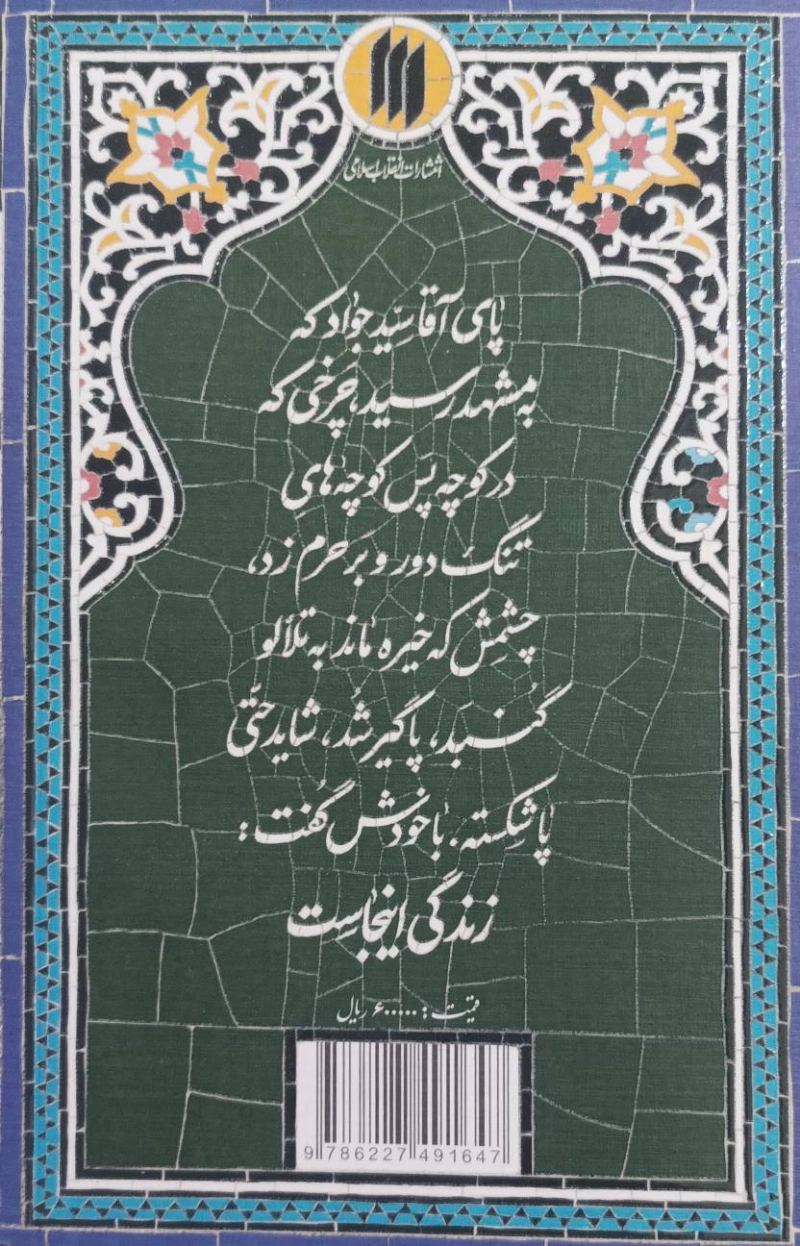 انتشارات انقلاب اسلامی
پای آقا سیّد جواد که
به مشهد رسید، چرخی که
در کوچه پس کوچه های
تنگ دور و بر حرم زد،
چشمش که خیره ماند به تلألو
گنبد، پاگیر شد، شاید حتّی
پا شکسته. با خودش گفت:
زندگی اینجاست
قیمت: ۶۰۰۰۰۰ ریال
9 786227 491647